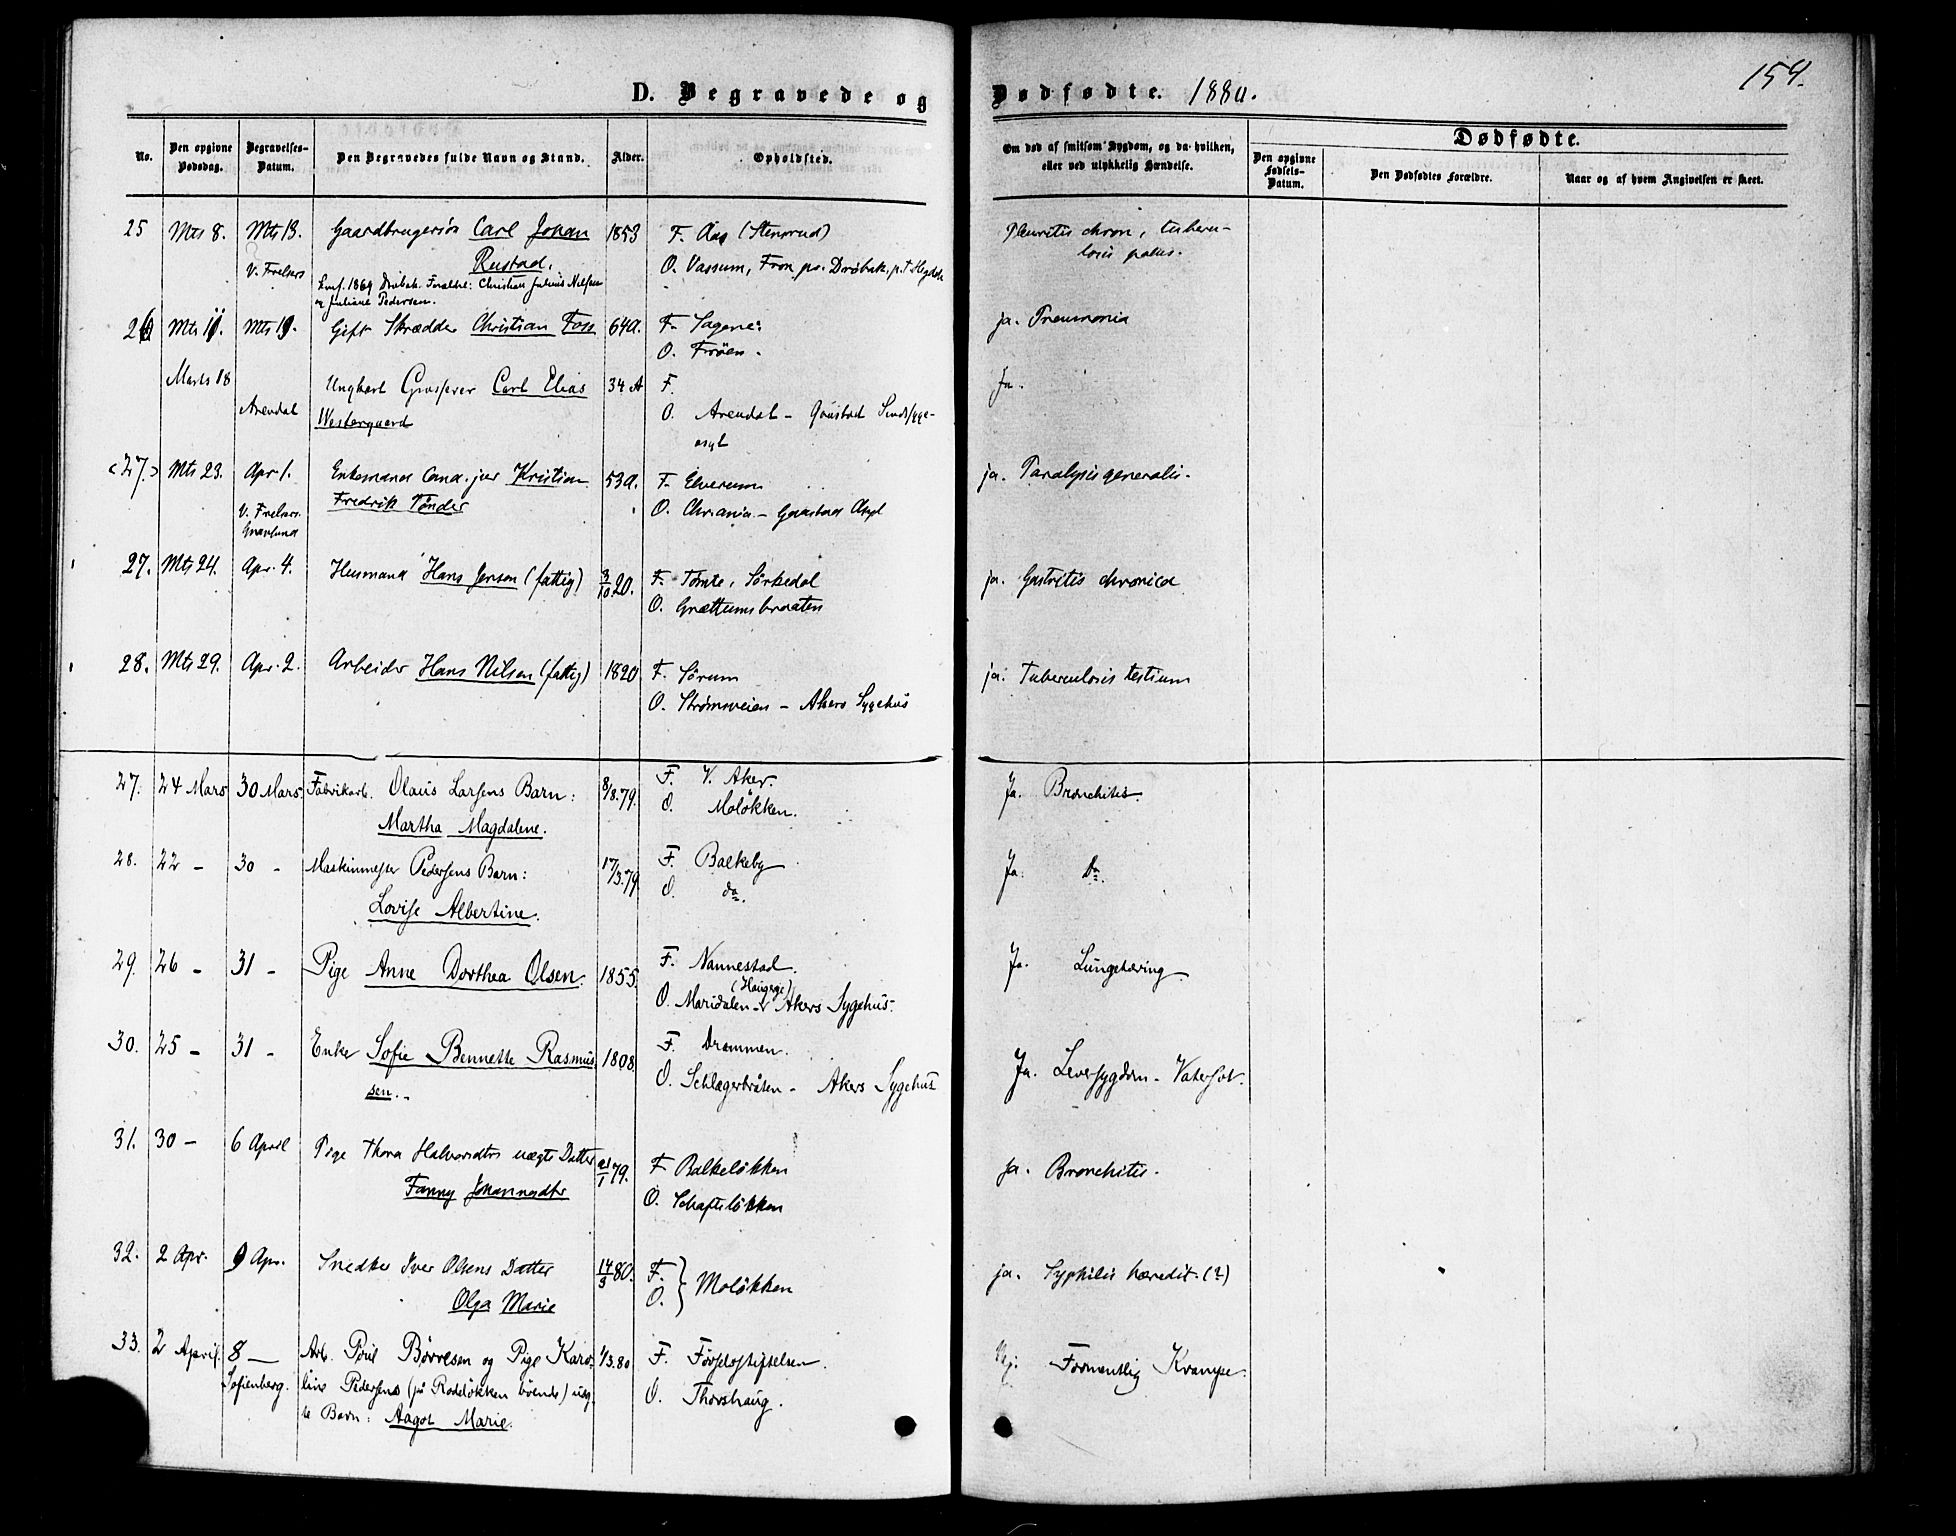 154.
D. Begravede og Dødfødte. 1880.
No.
Den opgivne Dødsdag.
Begravelses-Datum.
Den Begravedes fulde Navn og Stand.
Alder.
Opholdsted.
Om død af smitsom Sygdom, og da hvilken, eller ved ulykkelig Hændelse.
Dødfødte.
Den opgivne Fødsels-Datum.
Den Dødfødtes Forældre.
Naar og af hvem Angivelsen er skeet.
25 Mts 8. Mts 13. Gaardbrugersøn Carl Johan 1853 F. Aas (Stensrud) Pleuritis chron, tubercu-
V. Frelsers Rustad. O. Vassum, Fron pr. Drøbak, p.t. losis
Konf. 1869 Drøbak. Forældre: Christian Julius Nilsen
og Juliane Pedersen.
26 Mts 11. Mts 19. Gift Skrædder Christian Foss 64 a. F. Sagene. ja. Pneumonia
O. Frøen.
Marts 18 Ungkarl Grosserer Carl Elias 34 A F. Ja.
Arendal Westergaard O. Arendal – Gaustad Sindssyge-
asyl
(27.) Mts 23. Apr 1. Enkemand Cand. jur Kristian 53 a. F. Elverum ja. Paralysis generalis.
V. Frelsers Gravlund Fredrik Tønder O. Chr.ania – Gaustad Asyl
27. Mts 24. Apr. 4. Husmand Hans Jensen (fattig) 3/10 20. F. Tomte, Sørkedal ja. Gastritis chronica
O. Grættumsbraaten
28. Mts 29. Apr. 2. Arbeider Hans Nilsen (fattig) 1820 F. Sørum ja. Tuberculosis testium
O. Strømsveien – Akers Sygehus
27. 24 Mars 30 Mars Fabrikarb. Olaus Larsens Barn: 8/8.79. F. V. Aker. Ja. Bronchitis.
Martha Magdalene. O. Moløkken.
28. 22 – 30 – Maskinmester Pedersens Barn: 17/3.79 F. Balkeby Ja. Do.
Lovise Albertine. O. do.
29. 26 – 31 – Pige Anne Dorthea Olsen. 1855. F. Nannestad. Ja. Lungetæring
O. Maridalen – Akers Sygehus.
30. 25 – 31 – Enke Sofie Bennette Rasmus- 1808 F. Drammen. Ja. Leversygdom – Vatersot.
sen. – O. Schlagerbråten – Akers Sygehus
31. 30 – 6 April Pige Thora Halvorsdtrs uægte Datter 21/1 79. F. Balkeløkken ja. Bronchitis.
Fanny Johannesdtr O. Schafteløkken
32. 2 Apr. 9 Apr. Snedker Iver Olsens Datter 14/3 80. F. O. } Moløkken ja. Syphilis heredit. (?)
Olga Marie
33. 2 April. 8 – Arb. Poul Børresen og Pige Karo- 1/3.80 F. Fødselsstiftelsen. Nej. Formentlig Krampe.
Sofienberg. line Pedersens (på Rodeløkken boende) uæg- O. Thorshaug.
te Barn: Aagot Marie.